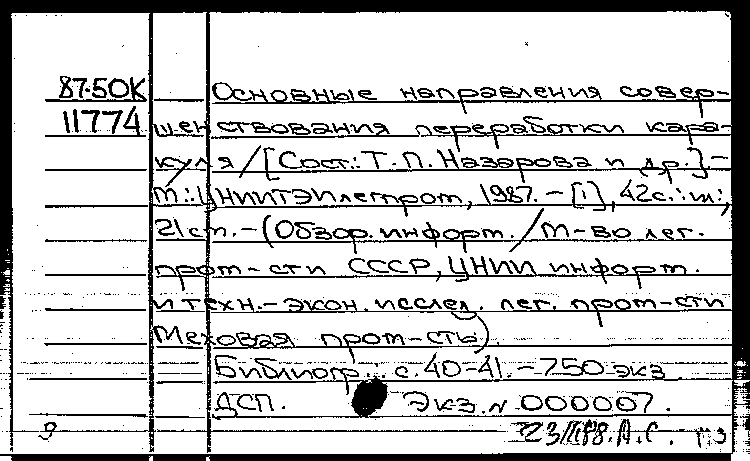 87-50К Основные направления совер-
11774 шенствования переработки кара-
куля / [Сост.: Т.П. Назарова и др.]. -
М.: ЦНИИТЭИлегпром, 1987. - [1], 42 с.: ил.;
21 см. - (Обзор. информ. / М-во лег.
пром-сти СССР, ЦНИИ информ.
и техн.-экон. исслед. лег. пром-сти
Меховая пром-сть).
Библиогр.: с. 40-41. - 750 экз
ДСП. Экз. № 000007.
9 23/III 88. А.С.